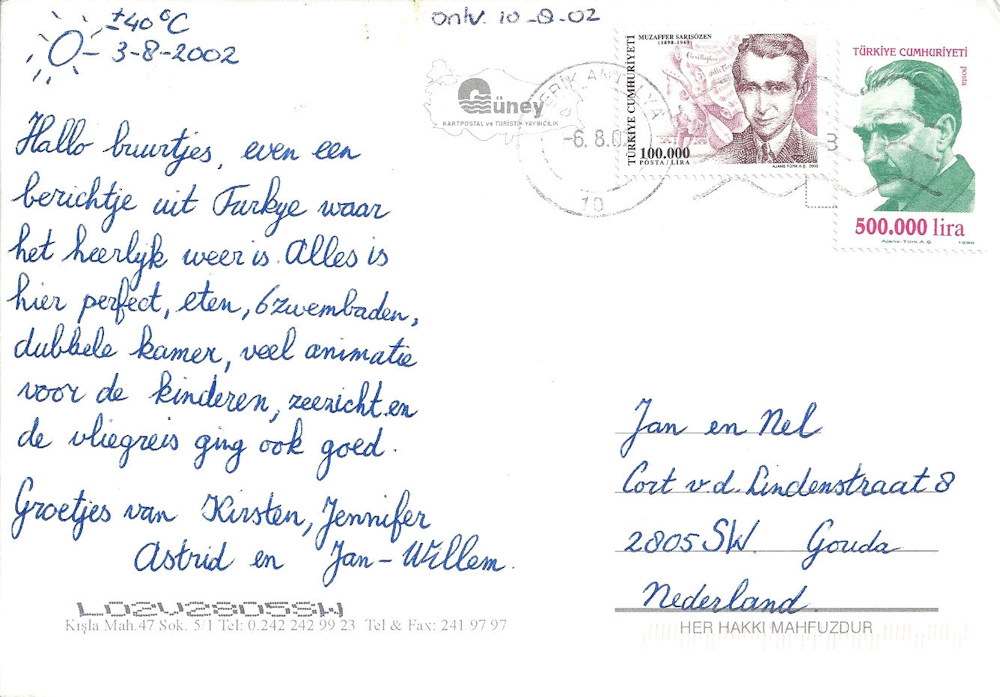 ±40°C
3-8-2002
ontv. 10-8-02
Hallo buurtjes, even een
berichtje uit Turkye waar
het heerlyk weer is. Alles is
hier perfect, eten, 6 zwembaden,
dubbele kamer, veel animatie
voor de kinderen, zeezicht en
de vliegreis ging ook goed.
Groetjes van Kirsten, Jennifer
Astrid en Jan-Willem.
LO2V2805SW
Kışla Mah.47 Sok. 5/1 Tel: 0.242 242 99 23 Tel & Fax: 241 97 97
Güney
KARTPOSTAL ve TURİSTİK YAYINCILIK
ANTALYA
-6. 8.02
19
TÜRKİYE CUMHURİYETİ
MUZAFFER SARISÖZEN
100.000
POSTA / LİRA
AJANS TÜRK A.Ş. 2002
TÜRKİYE CUMHURİYETİ
posta
500.000 lira
Ajans-Türk A.Ş.
Jan en Nel
Cort v.d. Lindenstraat 8
2805 SW Gouda
Nederland.
HER HAKKI MAHFUZDUR